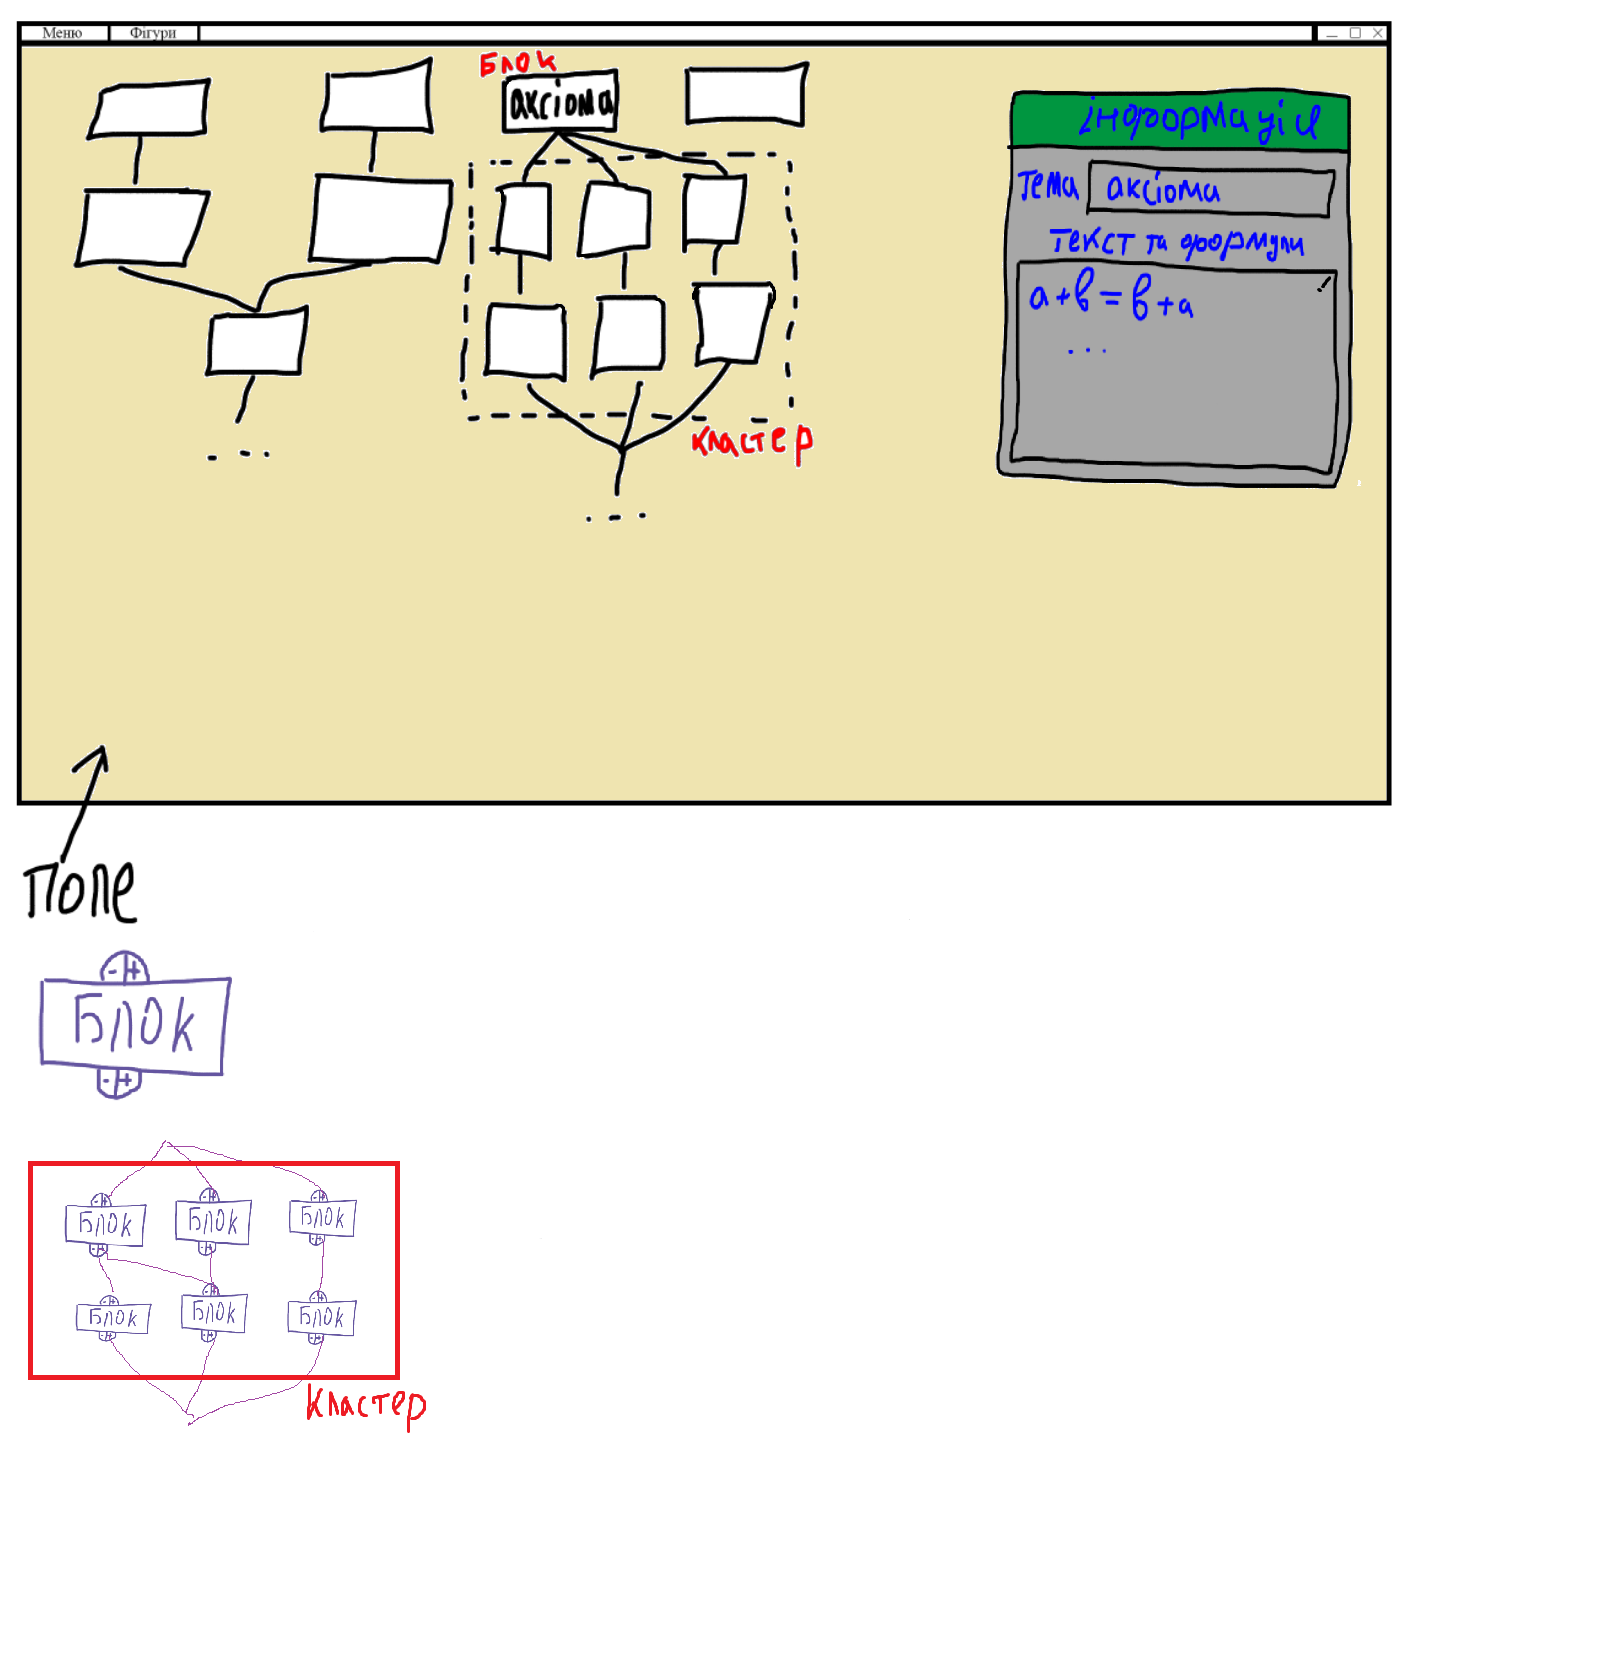 Меню Фігури
Блок
аксіома
кластер
інформація
Тема аксіома
Текст та формули
a+b=b+a
...
...
...
Поле
-+
Блок
-+
-+ -+ -+
Блок Блок Блок
-+ -+ -+
-+ -+ -+
Блок Блок Блок
-+ -+ -+
Кластер